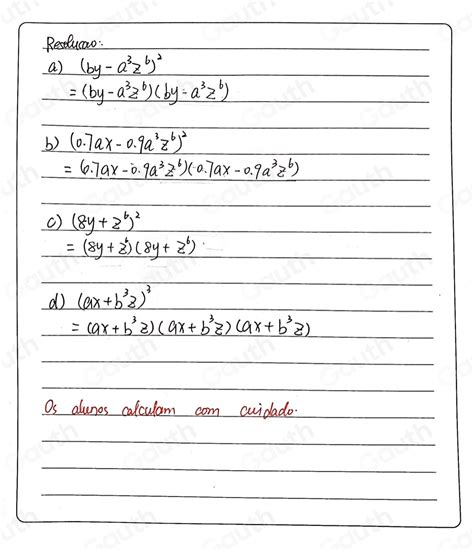 Resolucao:
a) (by - a³z⁶)²
= (by - a³z⁶)(by - a³z⁶)
b) (0.7ax - 0.9a³z⁶)²
= (0.7ax - 0.9a³z⁶)(-0.7ax - 0.9a³z⁶)
c) (8y + z⁶)²
= (8y + z⁶)(8y + z⁶).
d) (ax + b³z)³
= (ax + b³z)(ax + b³z)(ax + b³z)
Os alunos calculam com cuidado.